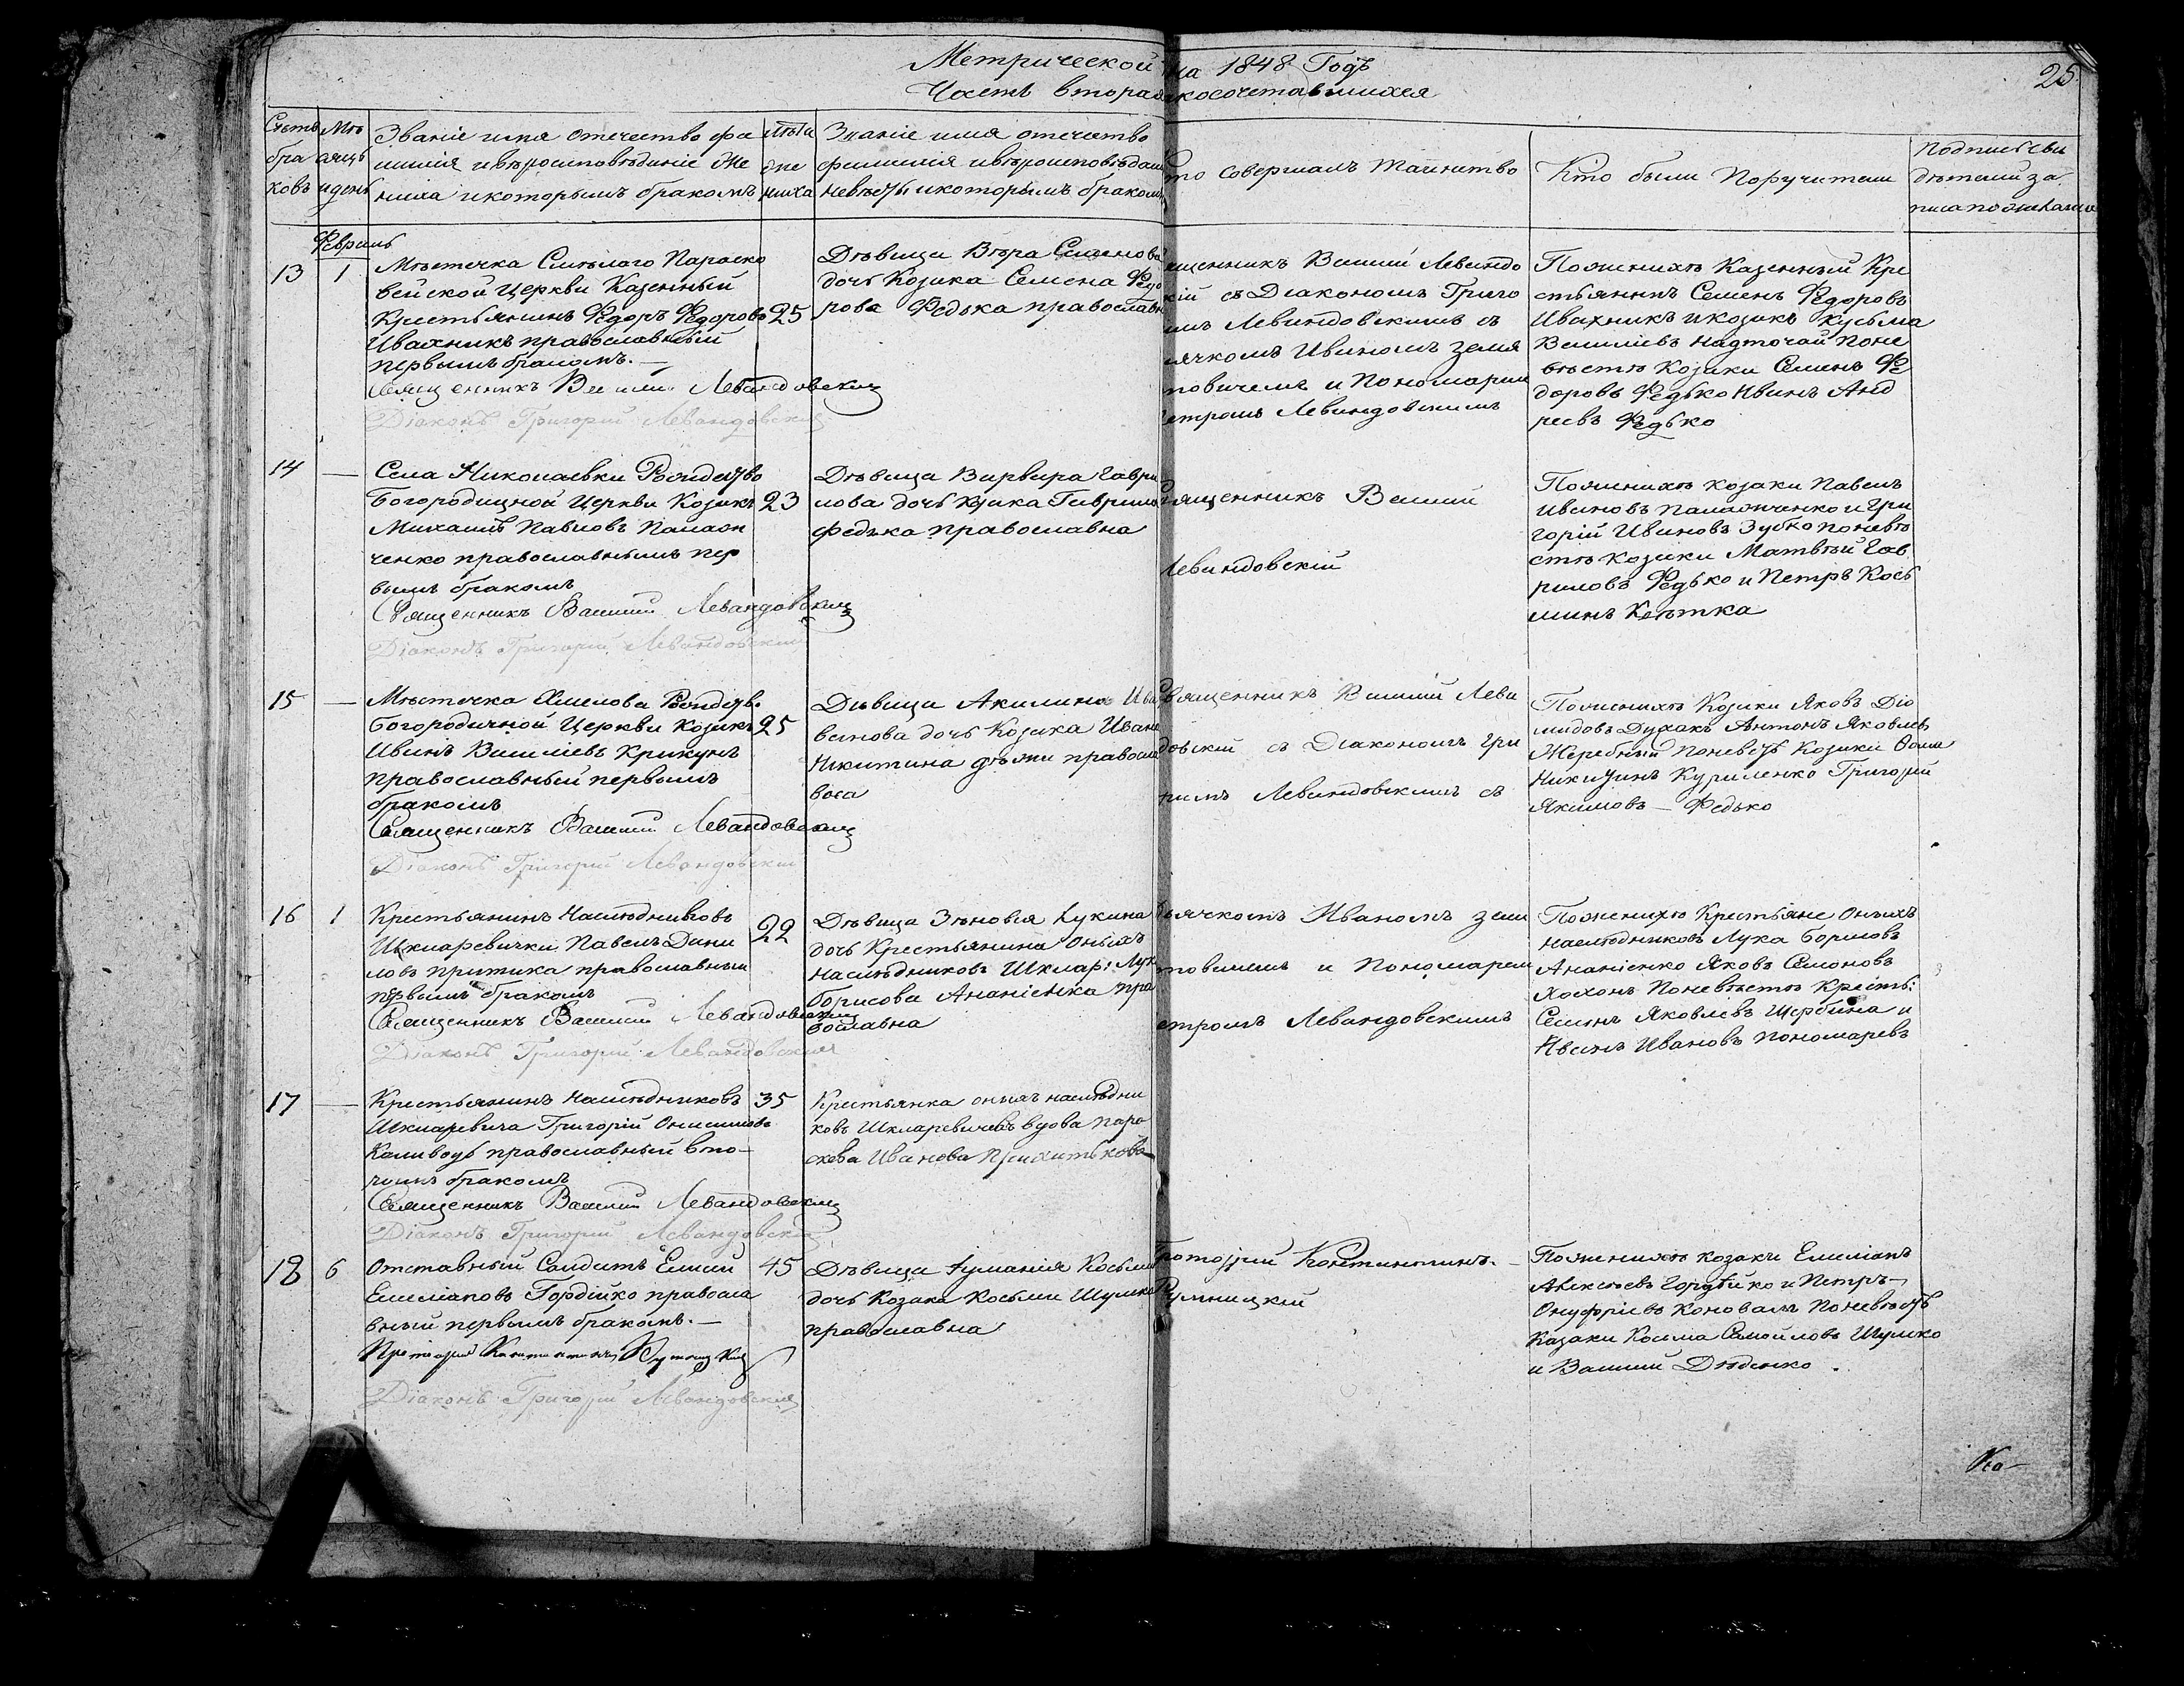 Метрической на 1848 Годъ
Часть вторая косочетавшихся
25
Счетъ бра ковъ
Мѣ сяцъ и день
Званіе имя отечество фа
милія и вѣроисповѣданіе же
ниха и которымъ бракомъ
лѣта же ниха
Званіе имя отечество
фамилія и вѣроисповѣдан
невѣсты и которымъ бракомъ
то совершалъ таинство
Кто были Поручители
Подпись сви
дѣтелей за
писи по желанію
Февраль
13 1
Мѣстечка Смѣлаго Параско
вейской Церкви Казенный
Крестьянинъ Федоръ Федоровъ 25
Ивахникъ православный
первымъ бракомъ.—
Священникъ Василий Левандовский
Діаконъ Григорій Левандовский
Дѣвица Вѣра Семенова
дочь Козака Семена Федо
рова Федька православн
ященникъ Василий Левандо
кій съ Діакономъ Григо
имъ Левандовскимъ съ
ячкомъ Иваномъ земя
товичемъ и Пономаремъ
етромъ Левандовскимъ
По женихѣ Казенный Кре
стьянинъ Семенъ Федоровъ
Ивахникъ и козакъ Кузьма
Василіевъ Надточай по не
вѣстѣ Козаки Семенъ Фе
доровъ Федько Иванъ Анд
реевъ Федько
14 —
Села Николаевки Рождество
Богородицной Церкви Козакъ 23
Михаилъ Павловъ Палаон
ченко православнымъ пер
вымъ бракомъ
Священникъ Василий Левандовский
Діаконъ Григорий Левандовский
Дѣвица Варвара Гаври
лова дочь Кзака Гаврила
Федька православна
вященникъ Василий
Левандовскій
По женихѣ козаки Павелъ
Ивановъ Палаонченко и Гри
горій Ивановъ Зубко по невѣ
стѣ козаки Матвѣй Гав
риловъ Федько и Петръ Кось
минъ
15 —
Мѣстечка Хмелова Рождеств.
Богородичной Церкви Козакъ 25
Иванъ Василіевъ Крикунъ
православный первымъ
бракомъ
Священникъ Василий Левандовский
Діаконъ Григорий Левандовский
Дѣвица Акилина Ива
ванова дочь Козака Ивана
Никитина православ
Священникъ Василий Леван
довскій съ Діакономъ Гри
ріемъ Левандовскимъ съ
По женихѣ Козаки Яковъ Діо
мидовъ Дудакъ Антонъ Яковлевъ
Жеребный по невѣстѣ Козаки Ѳома
Никитинъ Куриленко Григорий
Якимовъ — Федько
16 1
Крестьянинъ Наслѣдниковъ
Шкларевички Павелъ Дани 22
ловъ Притика православный
первымъ бракомъ
Священникъ Василий Левандовский
Діаконъ Григорий Левандовский
Дѣвица Зѣновія Лукина
дочь Крестьянина оныхъ
наслѣдниковъ Шклар: Лук
Борисова Ананіенка пра
вославна
Дьячкомъ Иваномъ земя
товичемъ и Пономарем
етромъ Левандовскимъ
По женихѣ Крестьяне оныхъ
наслѣдниковъ Лука Борисовъ
Ананіенко Яковъ Семоновъ
Хохонъ По невѣстѣ Крестъ:
Семенъ Яковлевъ Щербина и
Иванъ Ивановъ Пономаревъ
17 —
Крестьянинъ Наслѣдниковъ 35
Шкларевича Григорій Онисимовъ
православный вто—
рымъ бракомъ
Священникъ Василий Левандовский
Діаконъ Григорий Левандовский
Крестьянка оныхъ наслѣдни
ковъ Шкларевичевъ вдова Пара
скева Иванова
18 6
Отставный Солдатъ Елисей 45
Емеліановъ Гордійко правосла
вный первымъ бракомъ.—
Протоирей Константинъ
Діаконъ Григорій Левандовский
Дѣвица Косьмы
дочь Козака Косьмы Шумко
православна
ротоірей Константинъ.—
По женихѣ козаки Емеліанъ
Алексѣевъ Гордѣйко и Петръ—
Онуфріевъ Коновалъ По невѣстѣ
Казаки Косма Самойловъ Шумко
и Василий Дяденко.
Ко—